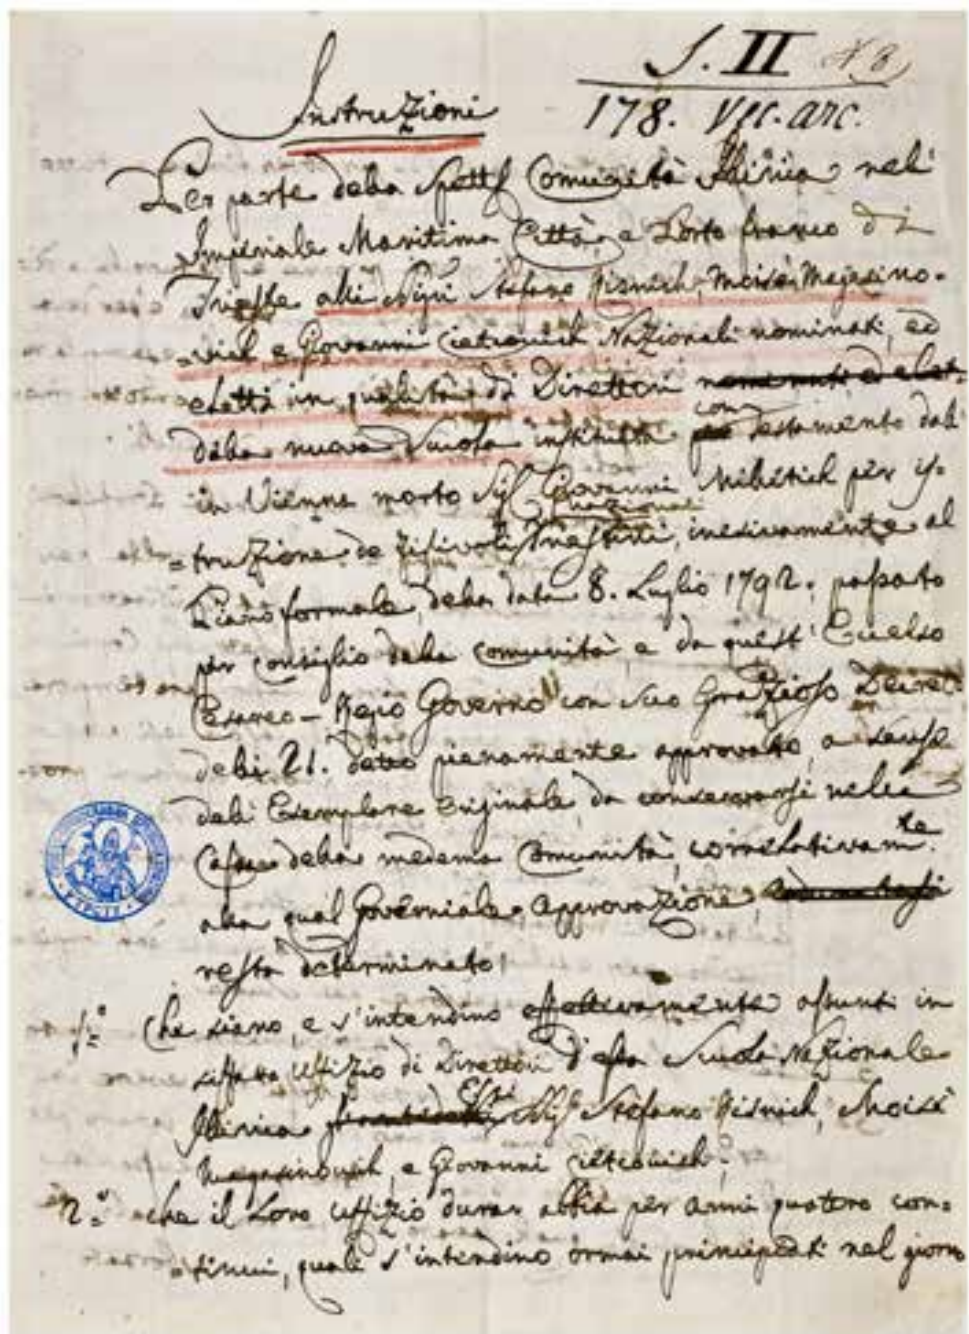 S. II N 8
Instruzioni 178. Vec. arc.
Per parte della Spett. Comunità Illirica nell'
Imperiale Maritima Città, e Porto franco di
Trieste alli Sigri Stefano Risnich, Moisè Magasino-
vich e Giovanni Cietcovich Nazionali nominati, ed
eletti in qualità di Direttori nominati ed elet-
della nuova Scuola instituita con testamento dall
in Vienna morto Sig. Giovanni Miletich per is-
nazionali
=truzione de Triestini, inesivamente al
Piano formale della data 8. Luglio 1792. passato
per consiglio della comunità e da quest' Eccelso
Cesareo-Regio Governo con suo Grazioso Decret
delli 21. detto pienamente approvato, a senso
dell Esemplare originale da conservarsi nella
Cassa della medema Comunità, correlativamte
alla qual Governiale Approvazione,
resta determinato!
1mo Che sieno, e s'intendino effettivamente assunti in
siffatto Uffizio di Direttori d'essa Scuola Nazionale
Illirica Essi Sigri Stefano Risnich, Moisè
Magasinovich, e Giovanni Cietcovich;
2do che il Loro Uffizio durar abbia per anni quatro con=
=tinui, quali s'intendino ormai principiati nel giorno